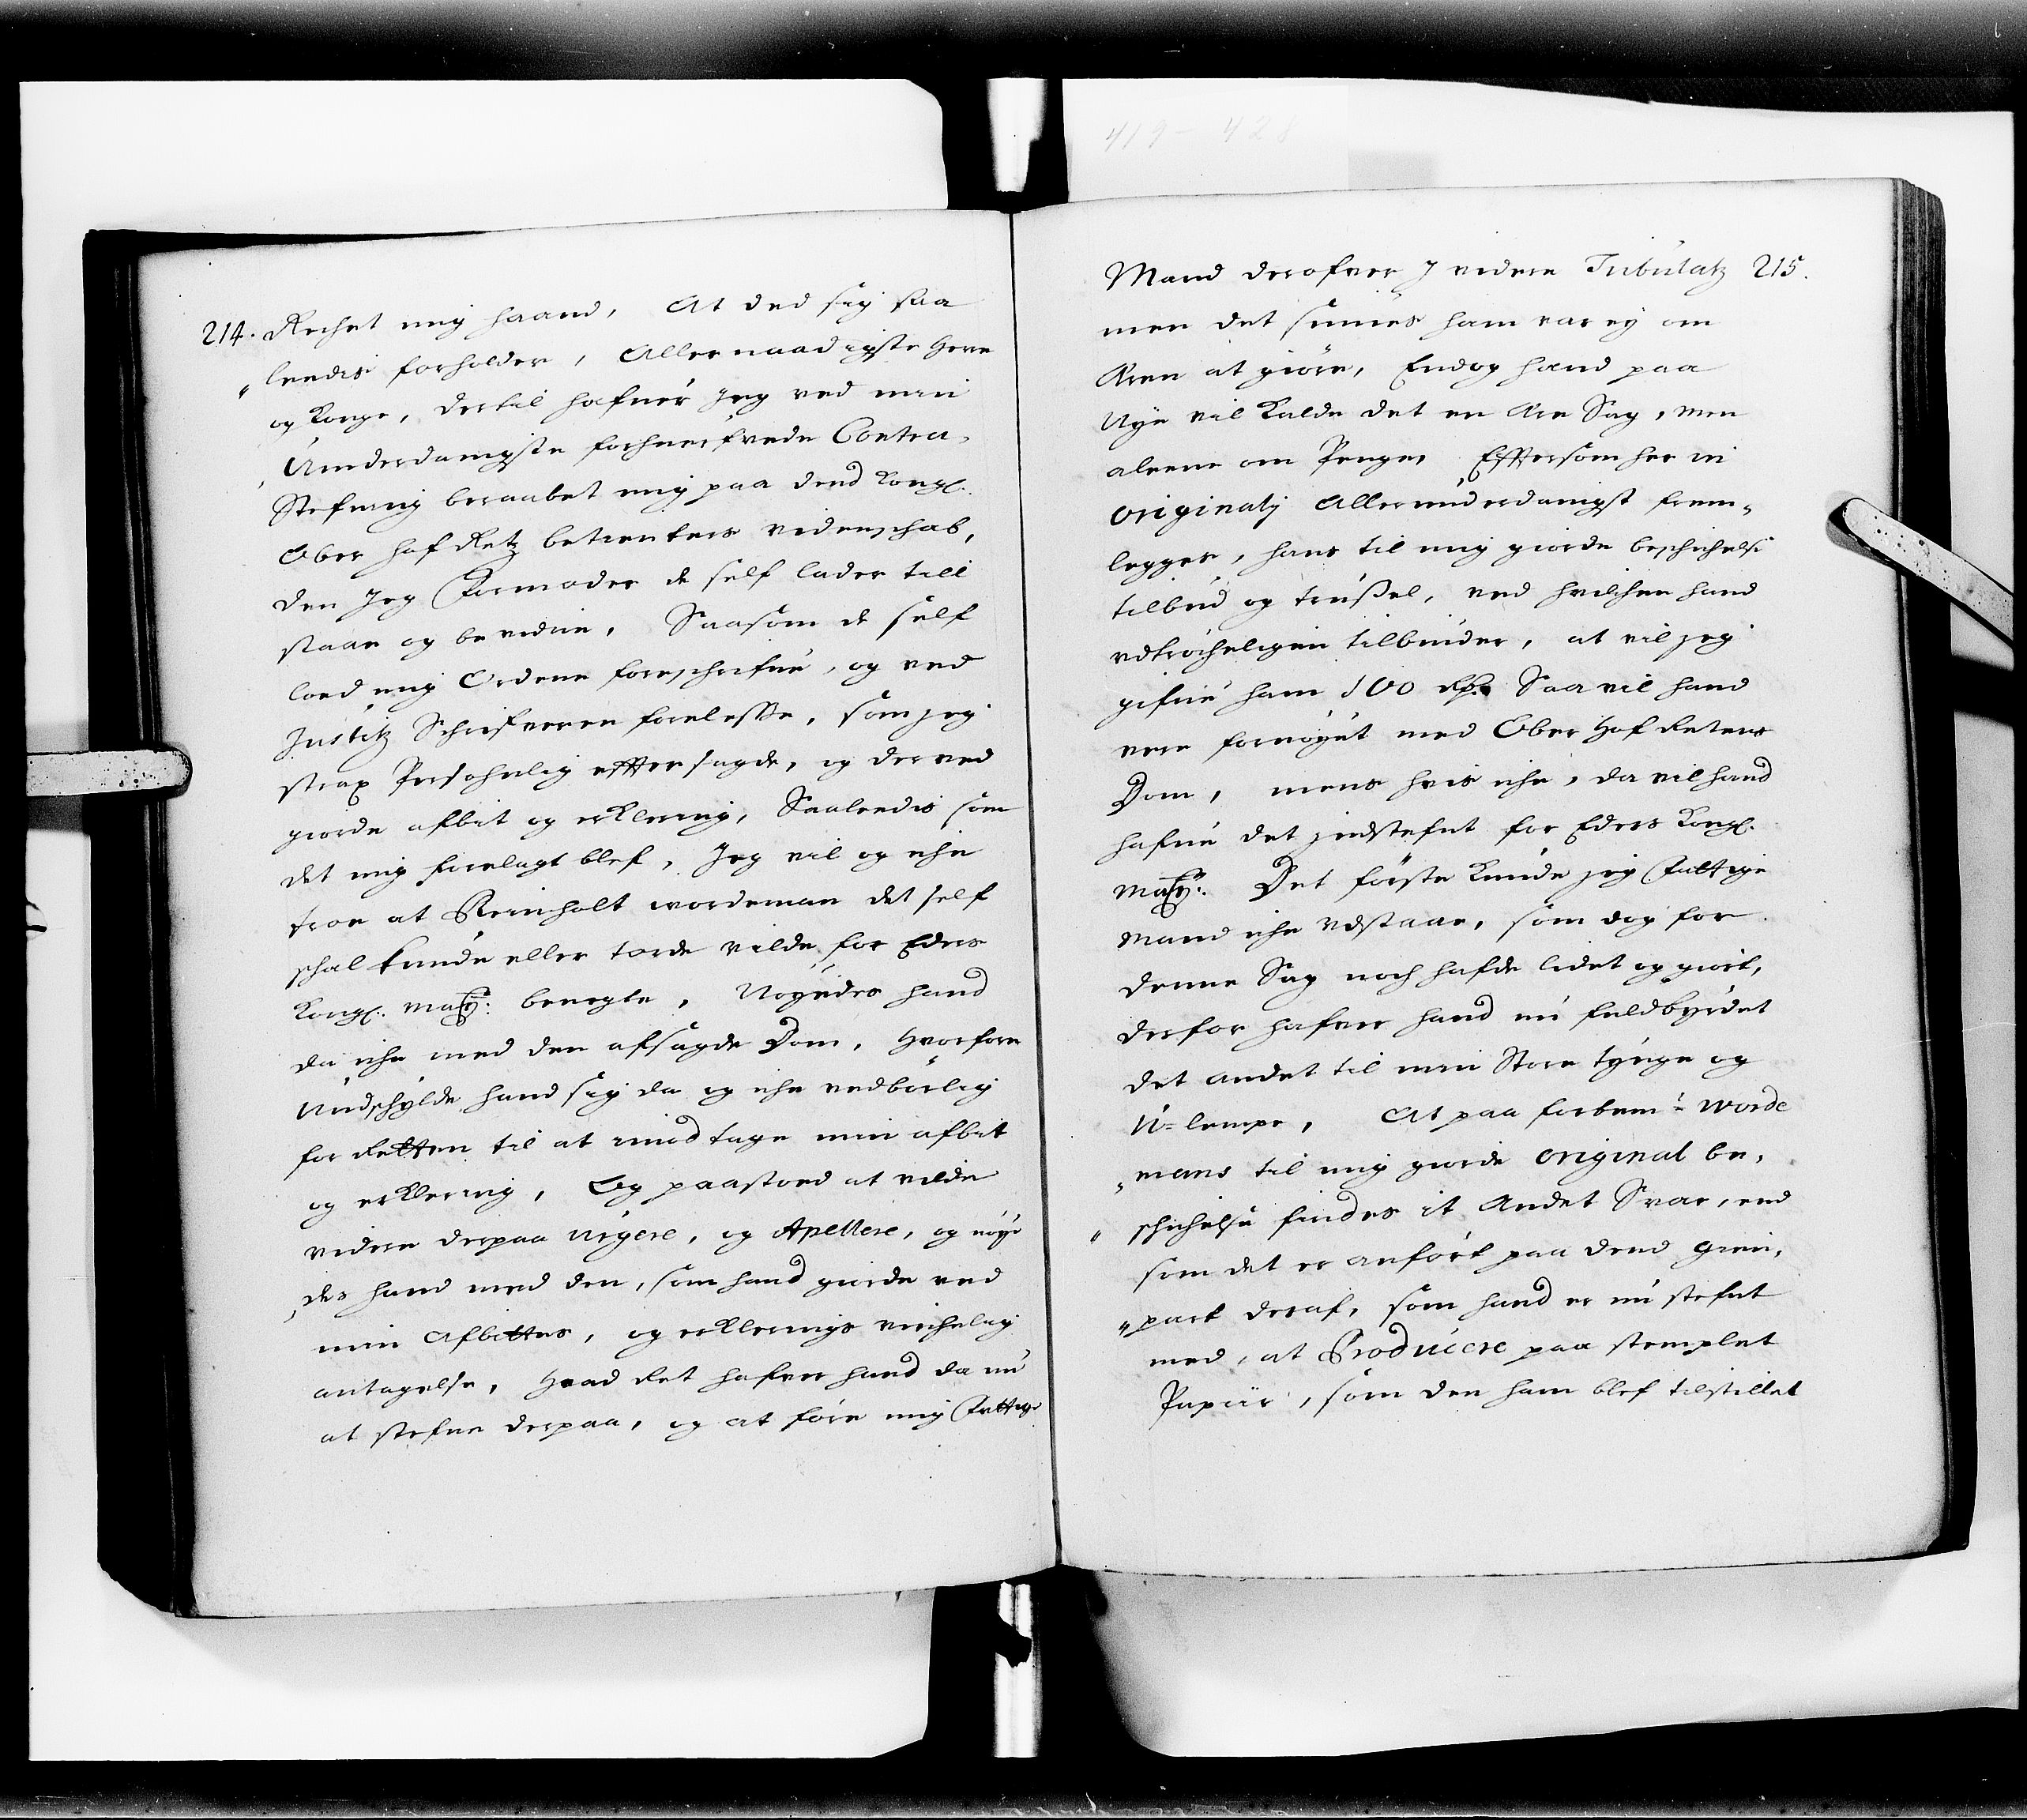 419 - 428
214.
Rechet mig haand, At ded sig saa
"leedis forholder, Allernaadigste Herre
og Konge, dertil hafuer Jeg ved min
Underdanigste forhuerfvede Contra-
Stefning beraabet mig paa dend Kongl:
Ober Hof Retz betienters videnschab,
den Jeg Formoder de self lader till
staae og bevidne, Saasom de self
loed mig Ordene foreschrifue, og ved
Justitz Schrifveren forelesse, som jeg
strax Persohnlig effter sagde, og derved
giorde afbet og erklering, Saaleedis som
det mig forelagt blef, Jeg vil og iche
troe at Reinholt wordeman det self
schal kunde eller torde vilde for Eders
Kongl: May: benegte, Nøyedes hand
da iche med den afsagde Dom, hvorfore
Undschylde hand sig da og iche vedbørlig
for Retten til at imodtage min afbet
og erklering, Og paastoed at vilde
videre derpaa urgere, og Apellere, og nøye
"des hand med den, som hand giorde ved
min Afbettes, og erklerings virchelig
antagelse, Hvad Ret hafver hand da nu
at stefne derpaa, og at føre mig Fattige
215.
Mand derofver J videre Tribulatz
men det siunes ham var ey om
Æren at giøre, Endog hand paa
Nye vil Kalde det en Ære Sag, men
aleene om Penge, Efftersom her in
originaly Allerunderdanigst frem-
legges, hans til mig giorde beschichelse
tilbud og trussel, ved hvilchen hand
udtrøcheligen tilbinder, at vil jeg
gifue ham 100 Rd. Saa vil hand
vere fornøyet med Ober Hof Retens
Dom, mens hvis iche, da vil hand
hafue det jndstefnt for Eders Kongl:
May: Det første kunde jeg Fattige
Mand iche udstaae, som dog for
denne Sag noch hafde lidet og giort,
derfor hafver hand nu fuldbyrdet
det andet til min Store tynge og
U-lempe, At paa forbem:te Worde
"mans til mig giorde original be-
"schichelse findes it Andet Svar, end
som det er anført paa dend gien-
"part deraf, som hand er nu stefnt
med, at Producere paa stemplet
Papiir, som den ham blef tilstillet